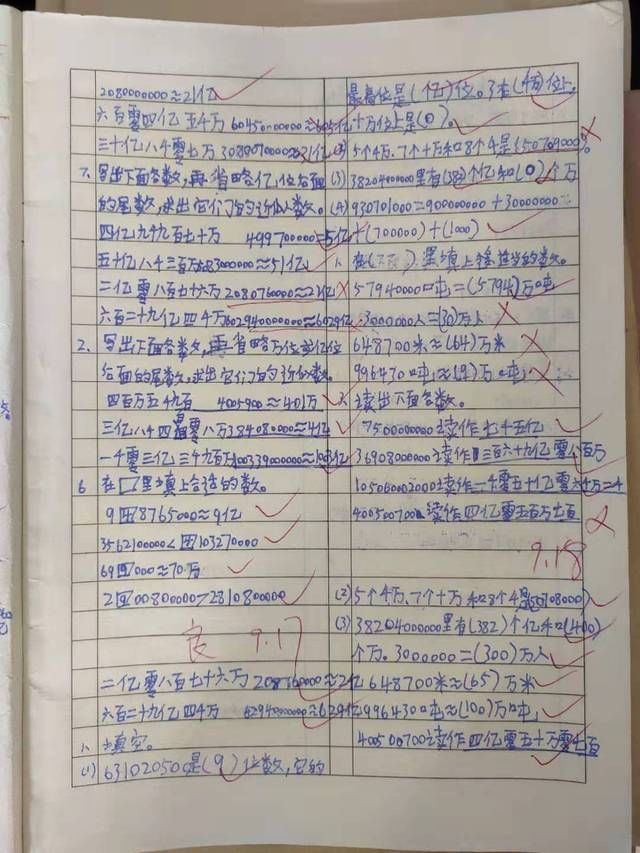 2080000000≈21亿
六百零四亿五千万 60450000000≈605亿
三十亿八千零七万 3080070000≈21亿
7、写出下面各数,再省略亿位后面
的尾数,求出它们的近似数。
四亿九千九百七十万 499700000≈5亿
五十亿八千三百万 5083000000≈51亿
二亿零八百七十六万 208076000≈21亿
六百二十九亿四千万 602940000000≈6029亿
2、写出下面各数,再省略万位或亿位
后面的尾数,求出它们的近似数。
四百万五千九百 4005900≈401万
三亿八千四百零八万 384080000≈4亿
一千零三亿三千九百万 100339000000≈1003亿
6 在□里填上合适的数。
9 8765000≈9亿
356210000< 103270000
69 000≈70万
2 00800000>281080000
良 9.17
二亿零八百七十六万 208760000≈2亿
六百二十九亿四千万 62940000000≈629亿
1、填空。
(1) 631020500是(9)位数,它的
最高位是(亿)位。3在(千万)位上。
十万位上是(0)。
(2) 5个千万、7个十万和8个千是(50709000)。
(3) 38204000000里有(382)个亿和(0)个万
(4) 930701000=900000000+30000000
+(700000)+(1000)
1、在( )里填上合适的数。
57940000吨=(5794)万吨
3000000人=(30)万人
648700米≈(64)万米
996430吨≈( )万吨
2、读出下面各数。
7500000000读作七十五亿
36908000000读作三百六十九亿零八百万
105060002000读作一千零五十亿六千万二千
400500700读作四亿零五百万七百
9.18
(2) 5个千万、7个十万和8个千是(50708000)
(3) 38204000000里有(382)个亿和(400)
个万。3000000=(300)万人
648700米≈(65)万米
996430吨≈(100)万吨
400500700读作四亿零五十万零七百